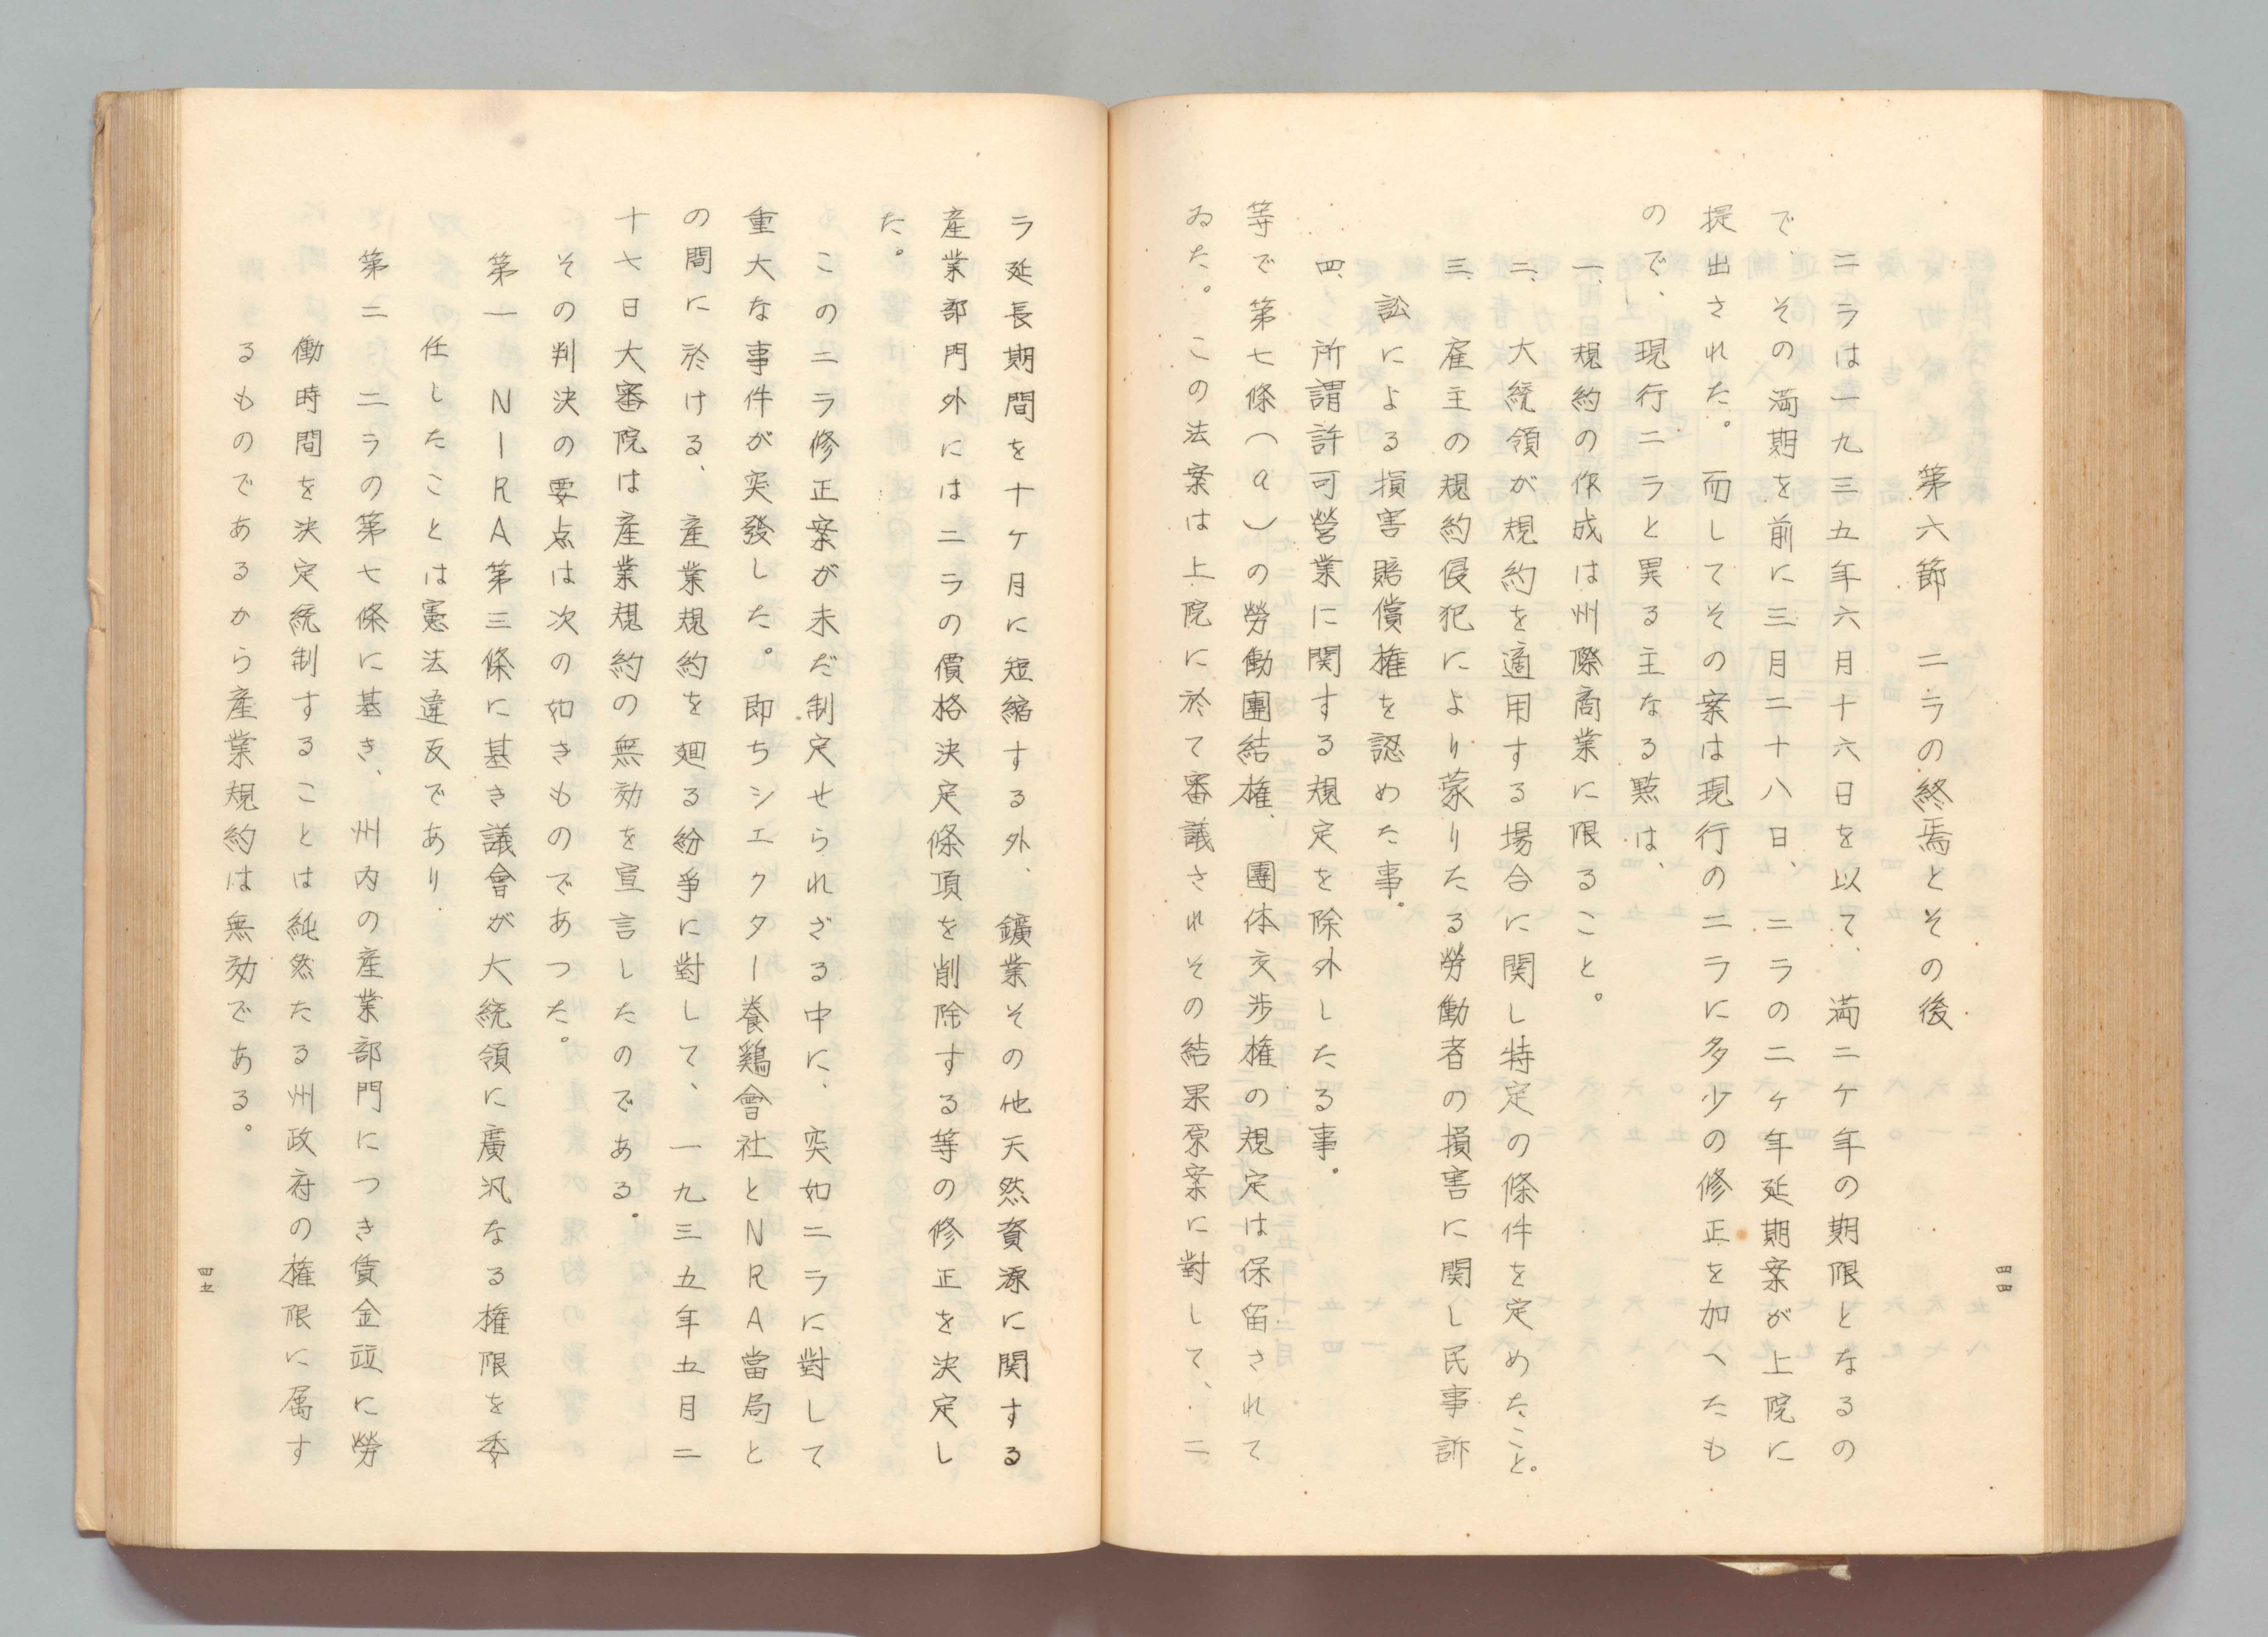 第六節　ニラの終焉とその後
ニラは一九三五年六月十六日を以て、満二ケ年の期限となるの
で、その満期を前に三月二十八日、ニラの二ケ年延期案が上院に
提出された。而してその案は現行のニラに多少の修正を加へたも
ので、現行ニラと異る主なる點は、
一、規約の作成は州際商業に限ること。
二、大統領が規約を適用する場合に関し特定の條件を定めたこと。
三、雇主の規約侵犯により蒙りたる勞働者の損害に関し民事訴
訟による損害賠償権を認めた事。
四、所謂許可營業に関する規定を除外したる事。
等で第七條（a）の勞働團結権、團体交渉権の規定は保留されて
ゐた。この法案は上院に於て審議されその結果原案に對して、ニ
四四
ラ延長期間を十ケ月に短縮する外、鑛業その他天然資源に関する
産業部門外にはニラの價格決定條項を削除する等の修正を決定し
た。
このニラ修正案が未だ制定せられざる中に、突如ニラに對して
重大な事件が突發した。即ちシエクター養鶏會社とNRA當局と
の間に於ける、産業規約を廻る紛爭に對して、一九三五年五月二
十七日大審院は産業規約の無効を宣言したのである。
その判決の要点は次の如きものであつた。
第一　NIRA第三條に基き議會が大統領に廣汎なる権限を委
任したことは憲法違反であり、
第二　ニラの第七條に基き、州内の産業部門につき賃金竝に勞
働時間を決定統制することは純然たる州政府の権限に属す
るものであるから産業規約は無効である。
四五